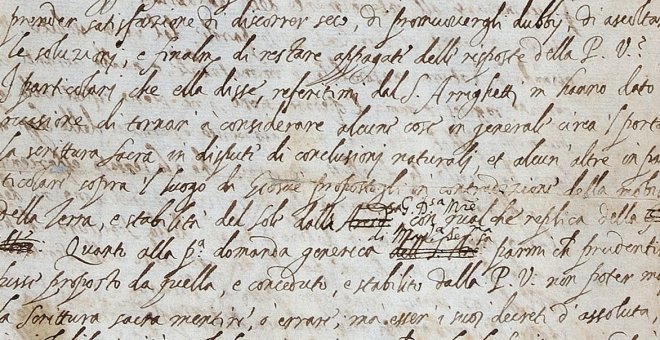 prender satisfazione di discorrer seco, di promuovergli dubbj, di ascolta
le soluzioni, e finalm. di restare appagati delle risposte della P. V.
I particolari che ella disse, referitimi dal S. Arrighetti m hanno dato
occasione di tornar à considerare alcune cose in generale circa 'l porta
la scrittura sacra in dispute di conclusioni naturali, et alcun' altre in par
ticolare sopra 'l luogo di Giosuè propostogli in contradizione della mobil
della Terra, e stabilità del Sole dalla
G. D.sa M.re con qualche replica della
di Mad.ma Ser.ma
Quanto alla p.a domanda generica parmi ch prudentis
fusse proposto da quella, e conceduto, e stabilito dalla P. V. non poter ma
la scrittura sacra mentire, ò errare, mà esser i suoi decreti d'assoluta,